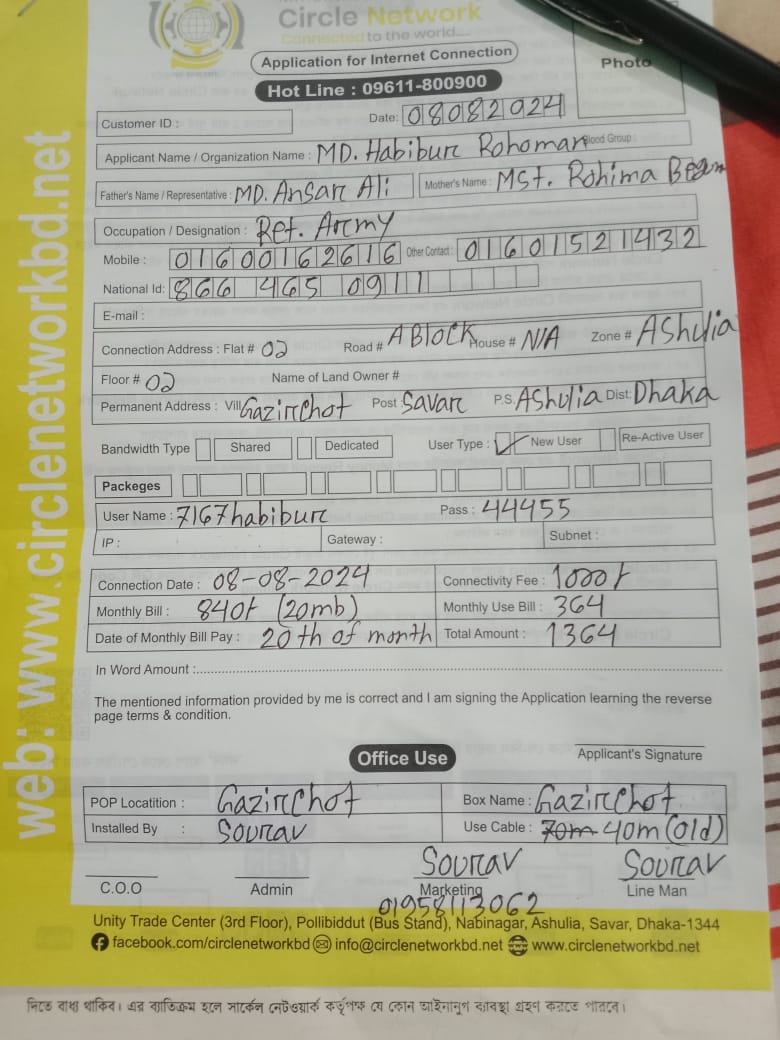 Circle Network
Connected to the world....
Application for Internet Connection
Photo
Hot Line : 09611-800900
Customer ID :
Date: 08082024
Applicant Name / Organization Name : MD. Habibur Rohoman Blood Group :
Father's Name / Representative : MD. Ansar Ali Mother's Name : Mst. Rohima Begum
Occupation / Designation : Ret. Army
Mobile : 01600162616 Other Contact : 01601521432
National Id: 866 465 0911
E-mail :
Connection Address : Flat # 02 Road # A Block House # N/A Zone # Ashulia
Floor # 02 Name of Land Owner #
Permanent Address : Vill Gazirchot Post Savar P.S. Ashulia Dist: Dhaka
Bandwidth Type Shared Dedicated User Type : ✓ New User Re-Active User
Packeges
User Name : 7167habibur Pass : 44455
IP : Gateway : Subnet :
Connection Date : 08-08-2024 Connectivity Fee : 1000৳
Monthly Bill : 840৳ (20mb) Monthly Use Bill : 364
Date of Monthly Bill Pay : 20th of month Total Amount : 1364
In Word Amount :
The mentioned information provided by me is correct and I am signing the Application learning the reverse
page terms & condition.
Applicant's Signature
Office Use
POP Locatition : Gazirchot Box Name : Gazirchot
Installed By : Sourav Use Cable : 70m 40m (old)
Sourav Sourav
C.O.O Admin Marketing Line Man
01958113062
Unity Trade Center (3rd Floor), Pollibiddut (Bus Stand), Nabinagar, Ashulia, Savar, Dhaka-1344
facebook.com/circlenetworkbd info@circlenetworkbd.net www.circlenetworkbd.net
web: www.circlenetworkbd.net
দিতে বাধ্য থাকিব। এর ব্যতিক্রম হলে সার্কেল নেটওয়ার্ক কর্তৃপক্ষ যে কোন আইনানুগ ব্যবস্থা গ্রহণ করতে পারবে।